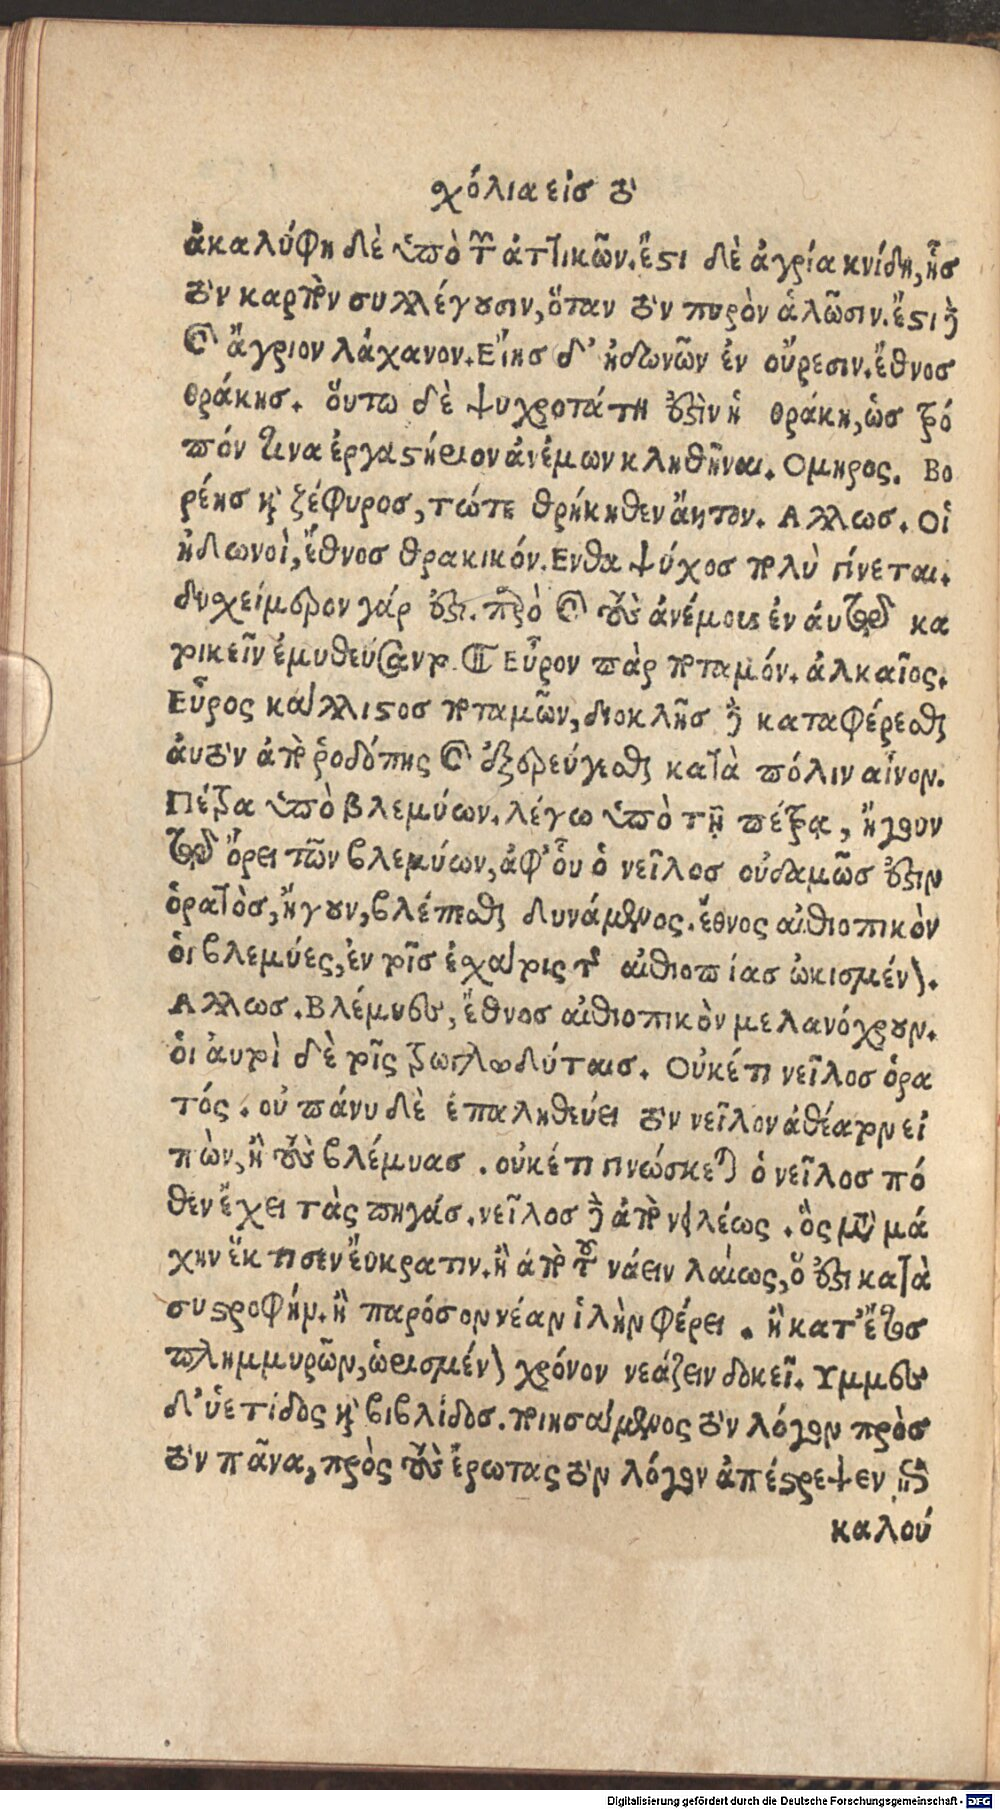 χόλια εἰσ τὸ
ἀκαλύφη δὲ ὑπὸ τῶν ἀττικῶν. ἔστι δὲ ἀγρία κνίδη, ἧσ
τὸν καρπὸν συλλέγουσιν, ὅταν τὸν πυρὸν ἁλῶσιν. ἔστι δὲ
καὶ ἄγριον λάχανον. Εἴησ δ' ἠδωνῶν ἐν οὔρεσιν. ἔθνοσ
θράκησ. ὅυτω δὲ ψυχροτάτη ἐστὶν ἡ θράκη, ὡσ τρό
πόν τινα ἐργαστήριον ἀνέμων κληθῆναι. Ομηρος. Βο
ρέησ καὶ ζέφυροσ, τώτε θρήκηθεν ἄητον. Αλλωσ. Οἱ
ἠδωνοὶ, ἔθνοσ θρακικόν. Ενθα ψύχοσ πολὺ γίνεται.
δυχείμερον γάρ ἐστι. παρὸ καὶ τοὺς ἀνέμους ἐν ἀυτῷ κα
τοικεῖν ἐμυθεύσαντο. Εὗρον πὰρ ποταμόν. ἀλκαῖος.
Εὗρος κάλλιστοσ ποταμῶν, διοκλῆσ δὲ καταφέρεσθαι
ἀυτὸν ἀπὸ ῥοδόπης καὶ ἐξερεύγεσθαι κατὰ πόλιν αἶνον.
Πέτρα ὑπὸ βλεμύων. λέγω ὑπὸ τῇ πέτρα, ἤγουν
τῷ ὄρει τῶν βλεμύων, ἀφ' οὗ ὁ νεῖλοσ οὐδαμῶσ ἐστιν
ὁρατὸσ, ἤγουν, βλέπεσθαι δυνάμενος. ἔθνος αἰθιοπικὸν
ὁι βλεμύες, ἐν τοῖσ ἐχάτοις τῆς αἰθιοπίασ ὠκισμένοι.
Αλλωσ. Βλέμυες, ἔθνοσ αἰθιοπικὸν μελανόχρουν.
ὁι ἀυτοὶ δὲ τοῖς τρωγλοδύταισ. Οὐκέτι νεῖλοσ ὁρα
τός. οὐ πάνυ δὲ ἐπαληθεύει τὸν νεῖλον ἀθέατον εἰ
πὼν, ἢ τοὺς βλέμυασ. οὐκέτι γινώσκεται ὁ νεῖλοσ πό
θεν ἔχει τὰς πηγάσ. νεῖλοσ δὲ ἀπὸ νειλέως. ὃς μετὰ μά
χην ἔκτισεν ἔυκρατιν. ἢ ἀπὸ τοῦ νάειν λαίως, ὅ ἐστι κατὰ
συστροφήν. ἢ παρόσον νέαν ἰλὴν φέρει. ἢ κατ' ἔτοσ
πλημμυρῶν, ὡρισμένον χρόνον νεάζειν δοκεῖ. Υμμες
δ' ὑετίδος καὶ βιβλίδοσ. ποιησάμενος τὸν λόγον πρὸσ
τὸν πᾶνα, πρὸς τοὺς ἔρωτας τὸν λόγον ἀπέστρεψεν
καλού